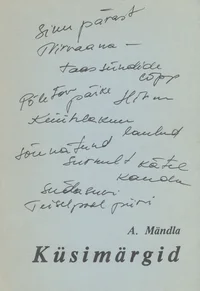 Sinu pärast
Nirvaana —
taassündide
lõpp
Põletav päike Hiton
Küütlakuu
laulud
Sõnatund
Surnult kätel
kanda
Südasuvi
Teiselpool piiri
A. Mändla
Küsimärgid